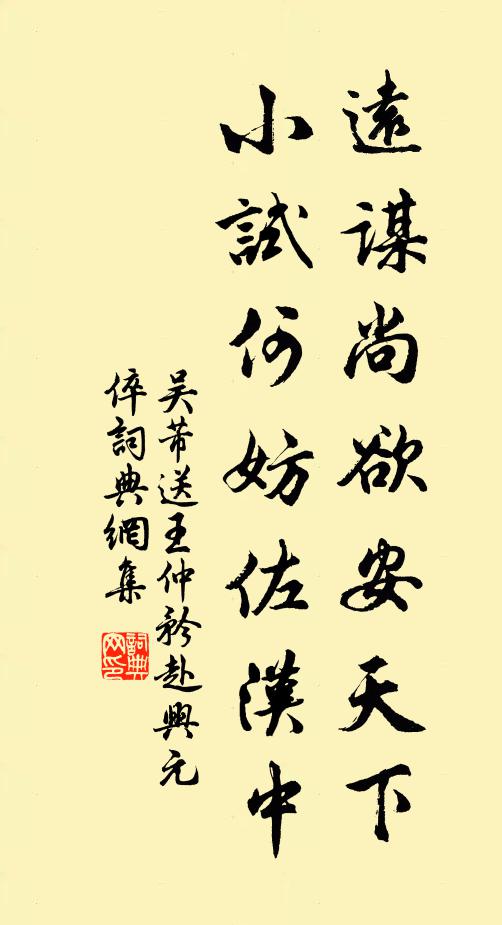 遠謀尚欲安天下
小試何妨佐漢中
吴芾送王仲矜赴興元
倅詞典網集
詞典網印